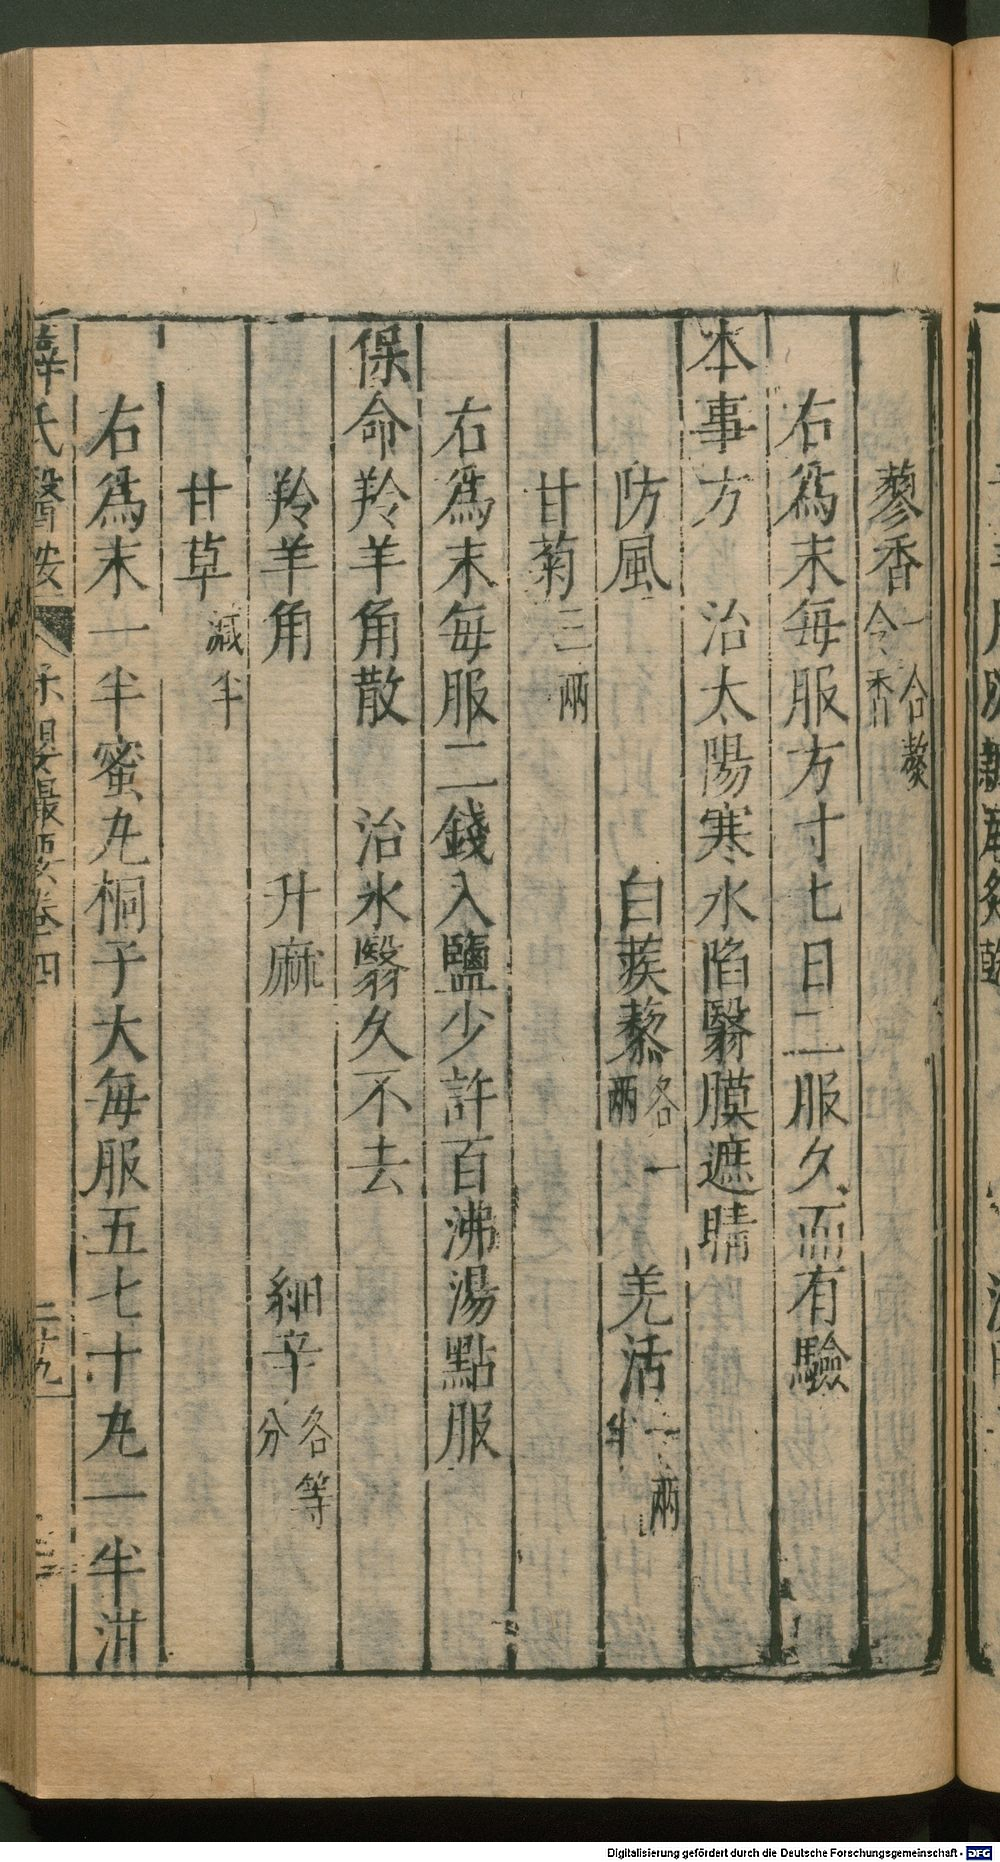 蓼香一合熬令香
右爲末每服方寸七日二服久而有驗
本事方　治太陽寒水陷翳膜遮睛
防風　白蒺藜各一兩　羌活一兩半
甘菊三兩
右爲末每服二錢入鹽少許百沸湯點服
保命羚羊角散　治氷翳久不去
羚羊角　升麻　細辛各等分
甘草減半
右爲末一半蜜丸桐子大每服五七十丸一半泔
薛氏醫按　保嬰撮要卷四　二十九
Digitalisierung gefördert durch die Deutsche Forschungsgemeinschaft - DFG